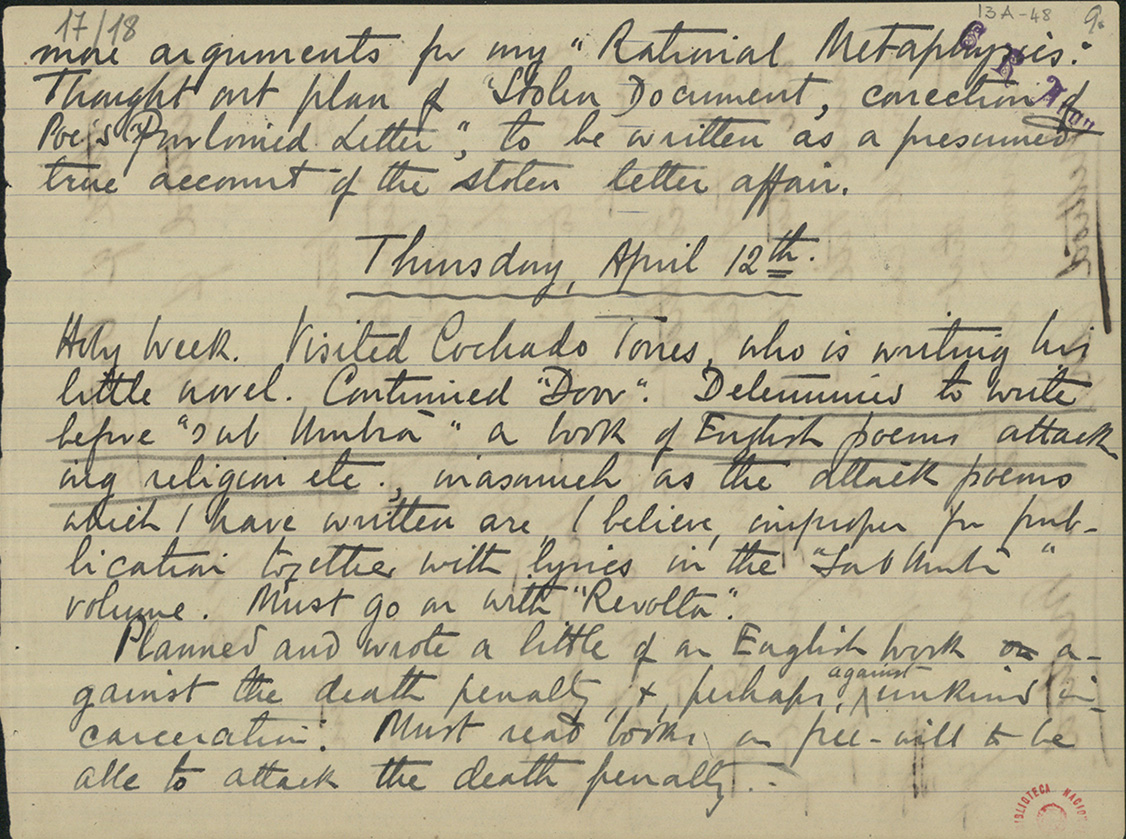 17/18
13A-48
9.
more arguments for my "Rational Metaphysics."
Thought out plan of "Stolen Document, correction of
Poe's "Purloined Letter", to be written as a presumed
true account of the stolen letter affair.
Thursday, April 12th.
Holy Week. Visited Cochado Torres, who is writing his
little novel. Continued "Door". Determined to write
before "Sub Umbra" a book of English poems attack
ing religion etc., inasmuch as the attack poems
which I have written are, I believe, improper for pub-
lication together with lyrics in the "Sub Umbra"
volume. Must go on with "Revolta".
Planned and wrote a little of an English work on a-
gainst the death penalty, +, perhaps, against unkind in-
carceration. Must read books on free-will to be
able to attack the death penalty.
BIBLIOTECA NACIO